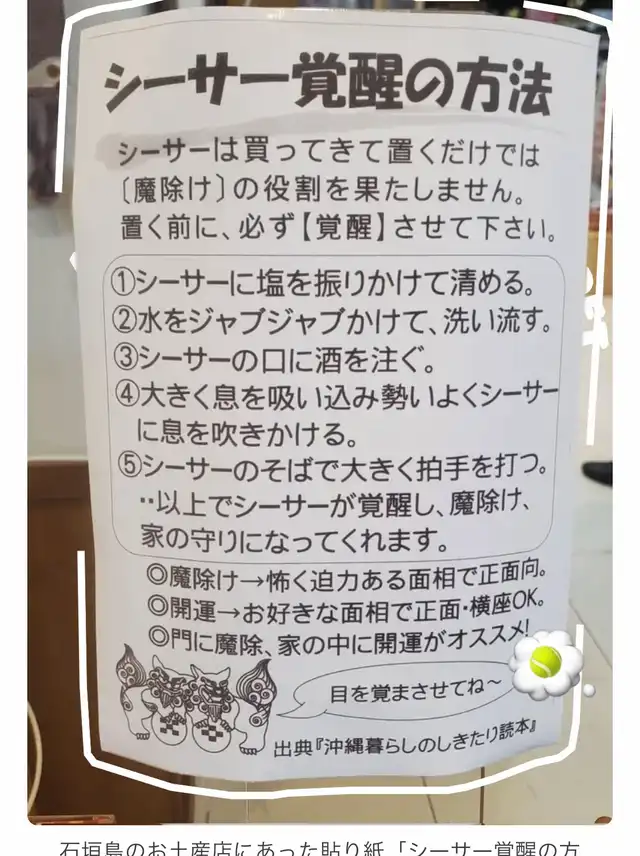 シーサー覚醒の方法
シーサーは買ってきて置くだけでは
〔魔除け〕の役割を果たしません。
置く前に、必ず【覚醒】させて下さい。
①シーサーに塩を振りかけて清める。
②水をジャブジャブかけて、洗い流す。
③シーサーの口に酒を注ぐ。
④大きく息を吸い込み勢いよくシーサー
に息を吹きかける。
⑤シーサーのそばで大きく拍手を打つ。
‥以上でシーサーが覚醒し、魔除け、
家の守りになってくれます。
◎魔除け→怖く迫力ある面相で正面向。
◎開運→お好きな面相で正面・横座OK。
◎門に魔除、家の中に開運がオススメ!
目を覚まさせてね〜
出典『沖縄暮らしのしきたり読本』
石垣島のお土産店にあった貼り紙「シーサー覚醒の方